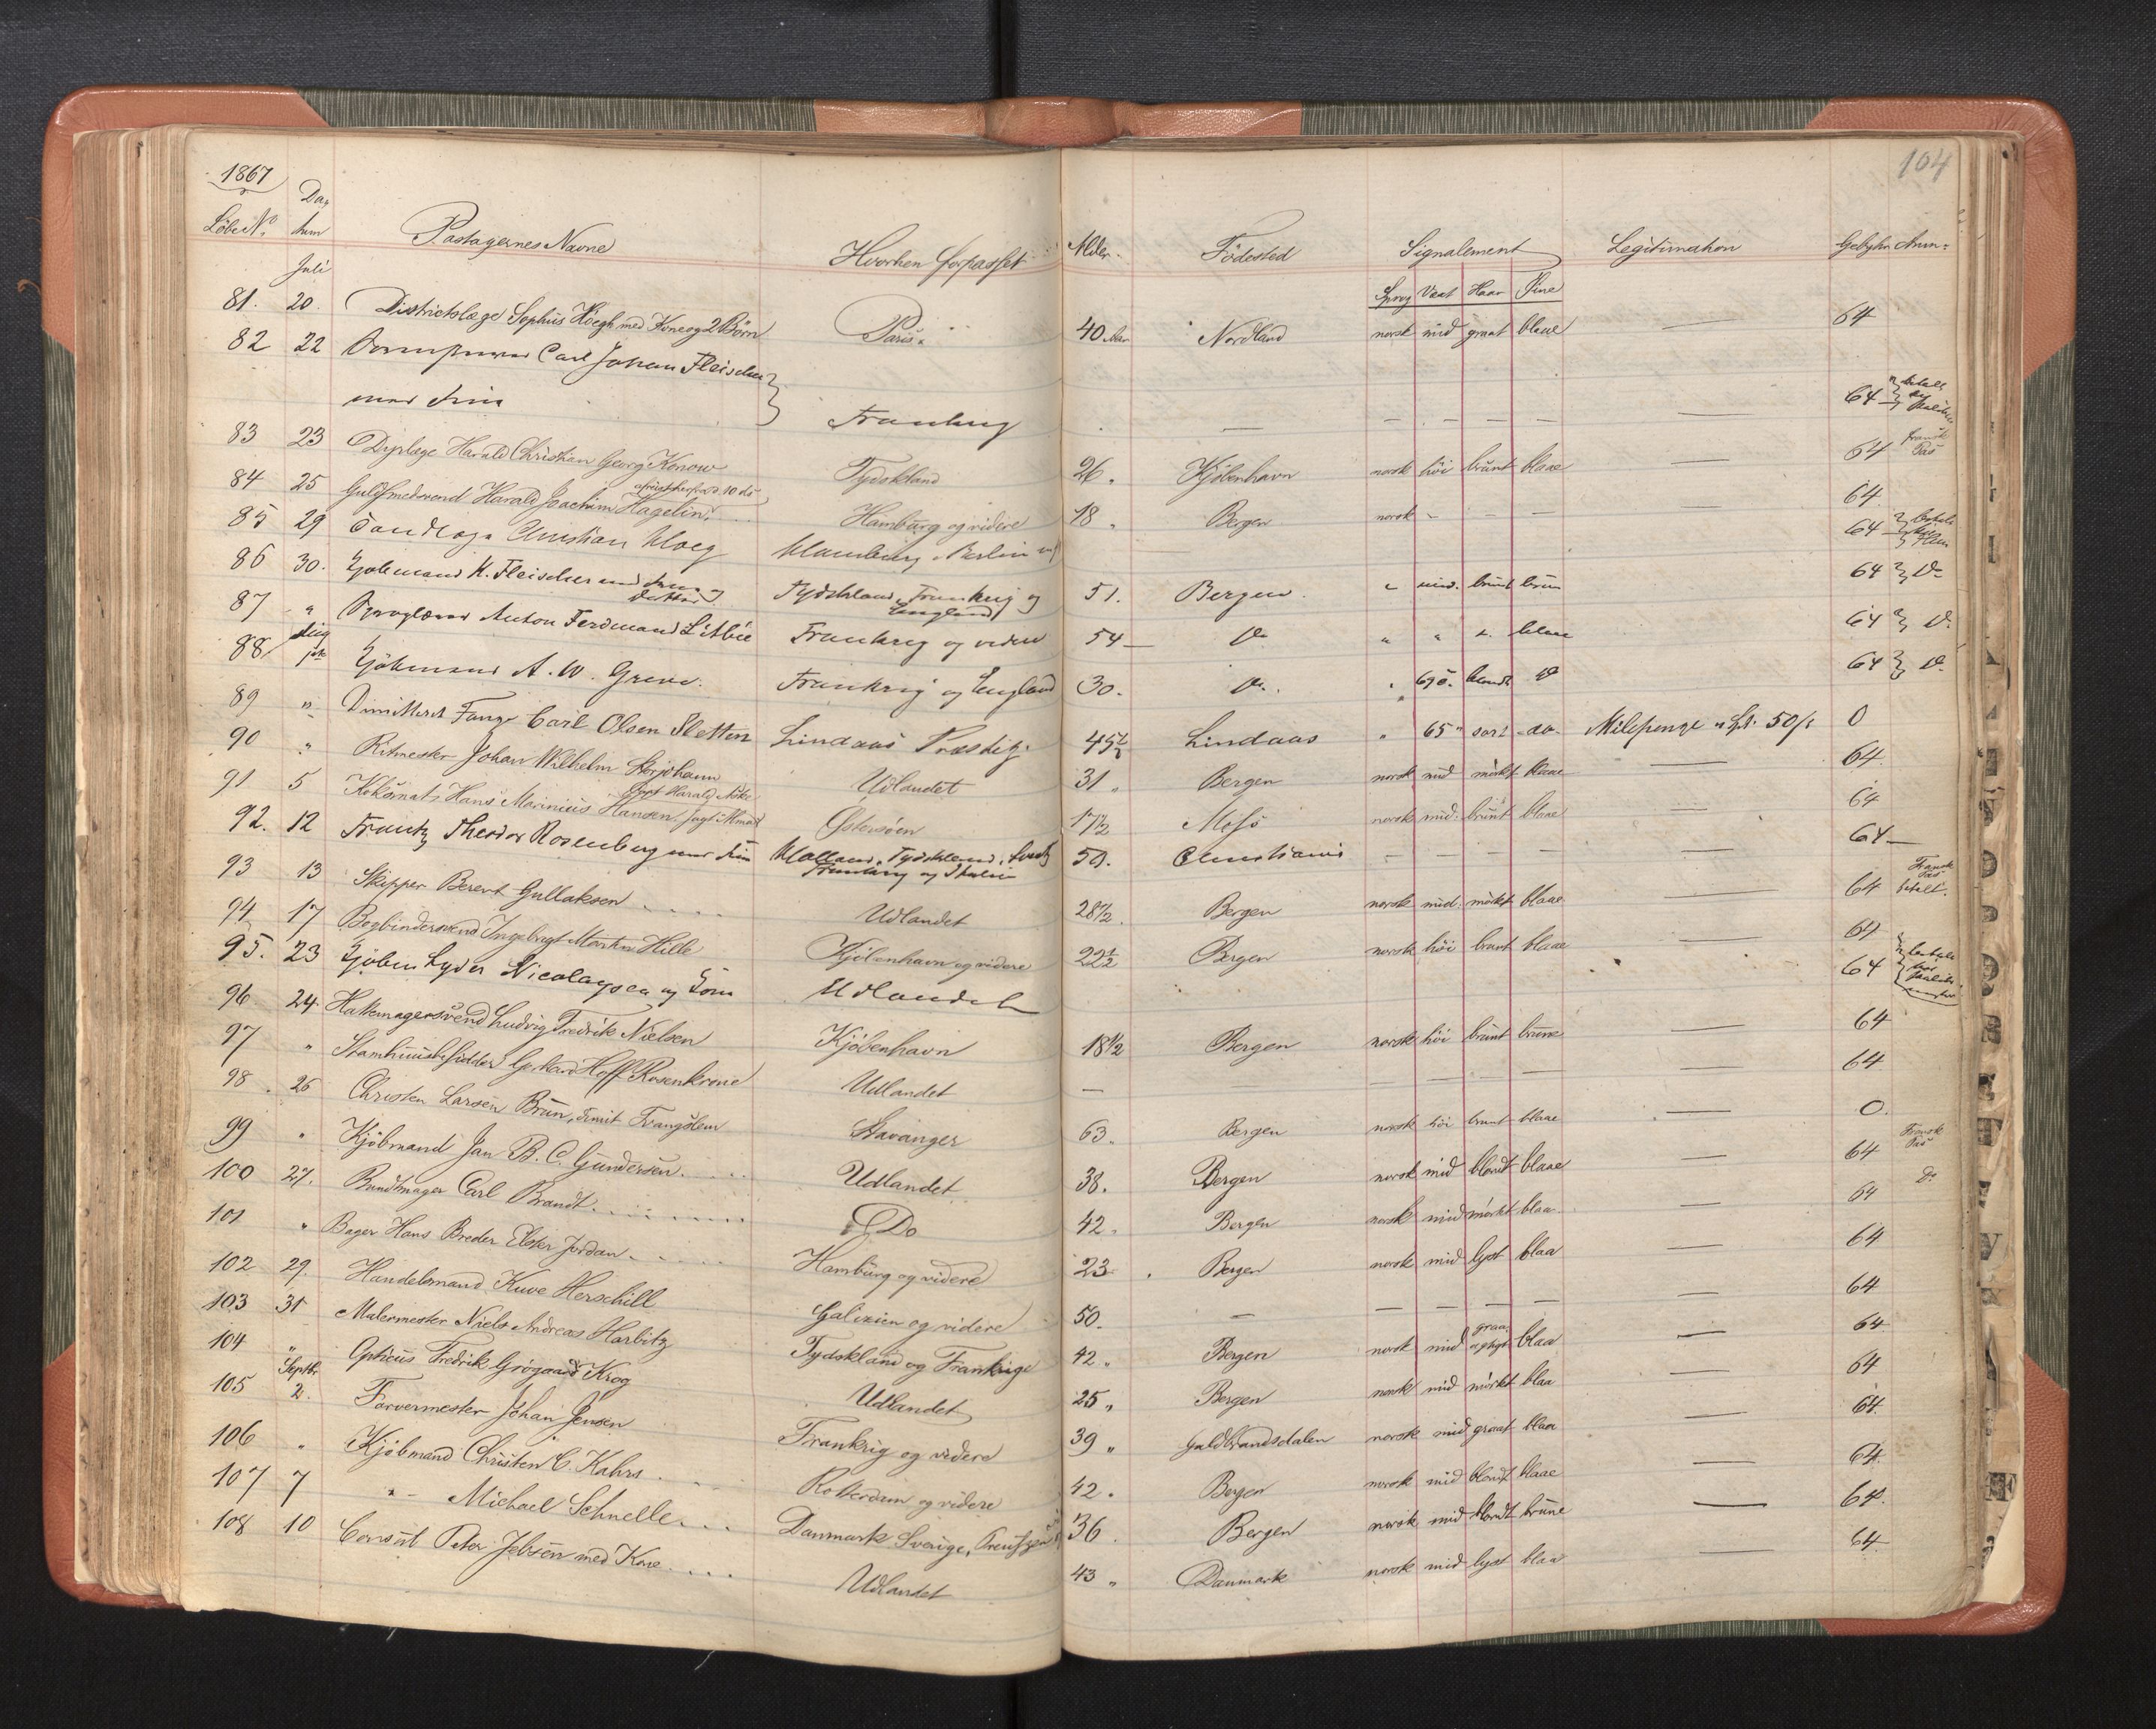 1867 104
Löbe No Datum Pastagernes Navne Hvorhen forpasset Alder Födested Signalement Legitimation Gebyhr Anm:
Juli Sprog Vext Haar Öine
81. 20. Districtslæge Sophus Höegh med Kone og 2 Börn Paris 40 Nordland norsk mid graat blaae — 64
82 22 Carl Johan Fleischer
med Frue Frankrig — — — — — — 64
83 23 Dyrlæge Harald Christian Georg Konow Tydskland 26. Kjöbenhavn norsk höi brunt blaae — 64 fransk Pas
84 25 Guldsmedsvend Harald Joachim Hagelin Hamburg og videre 18 " Bergen norsk - — — — 64.
85 29 Tandlæge Christian Hamburg, Berlin 64
86 30. Kjöbmand K. Fleischer med Frue og Datter Tydskland, Frankrig og England 51. Bergen. " mid. brunt brun 64 Do
87 " Anton Ferdinand Frankrig og videre 54 — Do " " " blaae 64 Do
88 Aug 1ste Kjöbmand A. W. Greve. Frankrig og England 30. Do. " blondt Do 64 Do
89 " Dimitteret Fange Carl Olsen Sletten Lindaas Præstegj. 45½ Lindaas " 65" sort do. Milepenge " Spd. 50 0
90 " Ritmester Johan Wilhelm Storjohann Udlandet 31 " Bergen norsk mid mörkt blaae — 64.
91 5 Koksmat Hans Marinius Hansen, Östersöen 17½ norsk mid. brunt blaae — 64
92. 12 Frantz Theodor Rosenberg med Frue Holland, Tydskland, Frankrig og Italien 50. Christiania — — — — 64 —
93 13 Skipper Berent Gullaksen . . . . Udlandet 28½. Bergen norsk mid. mörkt blaae — 64 Fransk Pas betalt.
94 17 Bogbindersvend Ingebrigt Martin Hille Kjöbenhavn og videre 22½ Bergen norsk höi brunt blaae — 64
95. 23 Kjöbm Lyder Nicolaysen og Sön Udlandet 64
96 24. Hattemagersvend Ludvig Fredrik Nielsen Kjöbenhavn 18½ Bergen norsk höi brunt brune — 64
97 " Stamhuusbesidder Gerhard Hoff Rosenkrone Udlandet — — — — — — 64
98 26 Christen Larsen Brun, dimit Trangslem Stavanger 63. Bergen norsk höi brunt blaae — 0.
99 " Kjöbmand Jan B. C. Gundersen . . . . Udlandet 38. Bergen norsk mid blondt blaae — 64 Fransk Pas
100 27. Bundtmager Carl Brandt . . . . Do 42. Bergen norsk mid mörkt blaa — 64 Do
101 " Bager Hans Breder Elster Jordan . . . . Hamburg og videre 23 . Bergen norsk mid lyst blaa — 64
102 29. Handelsmand Kuve Herschill Galizien og videre 50. — — — — — — 64
103 31 Malermester Niels Andreas Harbitz Tydskland og Frankrige 42 " Bergen norsk mid blaa — 64
104 " Opticus Fredrik Grögaard Krog Udlandet 25 " Bergen norsk mid mörkt blaa 64
105 Septbr 2. Farvermester Johan Jensen Frankrig og videre 39 " Guldbrandsdalen norsk mid graat blaa — 64.
106 " Kjöbmand Christen C. Kahrs . . Rotterdam og videre 42. Bergen norsk mid blondt blaae — 64.
107 7 " - Michael Schnelle . . . Danmark Sverige, Preussen 36. Bergen norsk mid blondt brune — 64.
108 10 Consul Peter Jebsen med Kone . . . . Udlandet 43 " Danmark norsk mid lyst blaa — 64